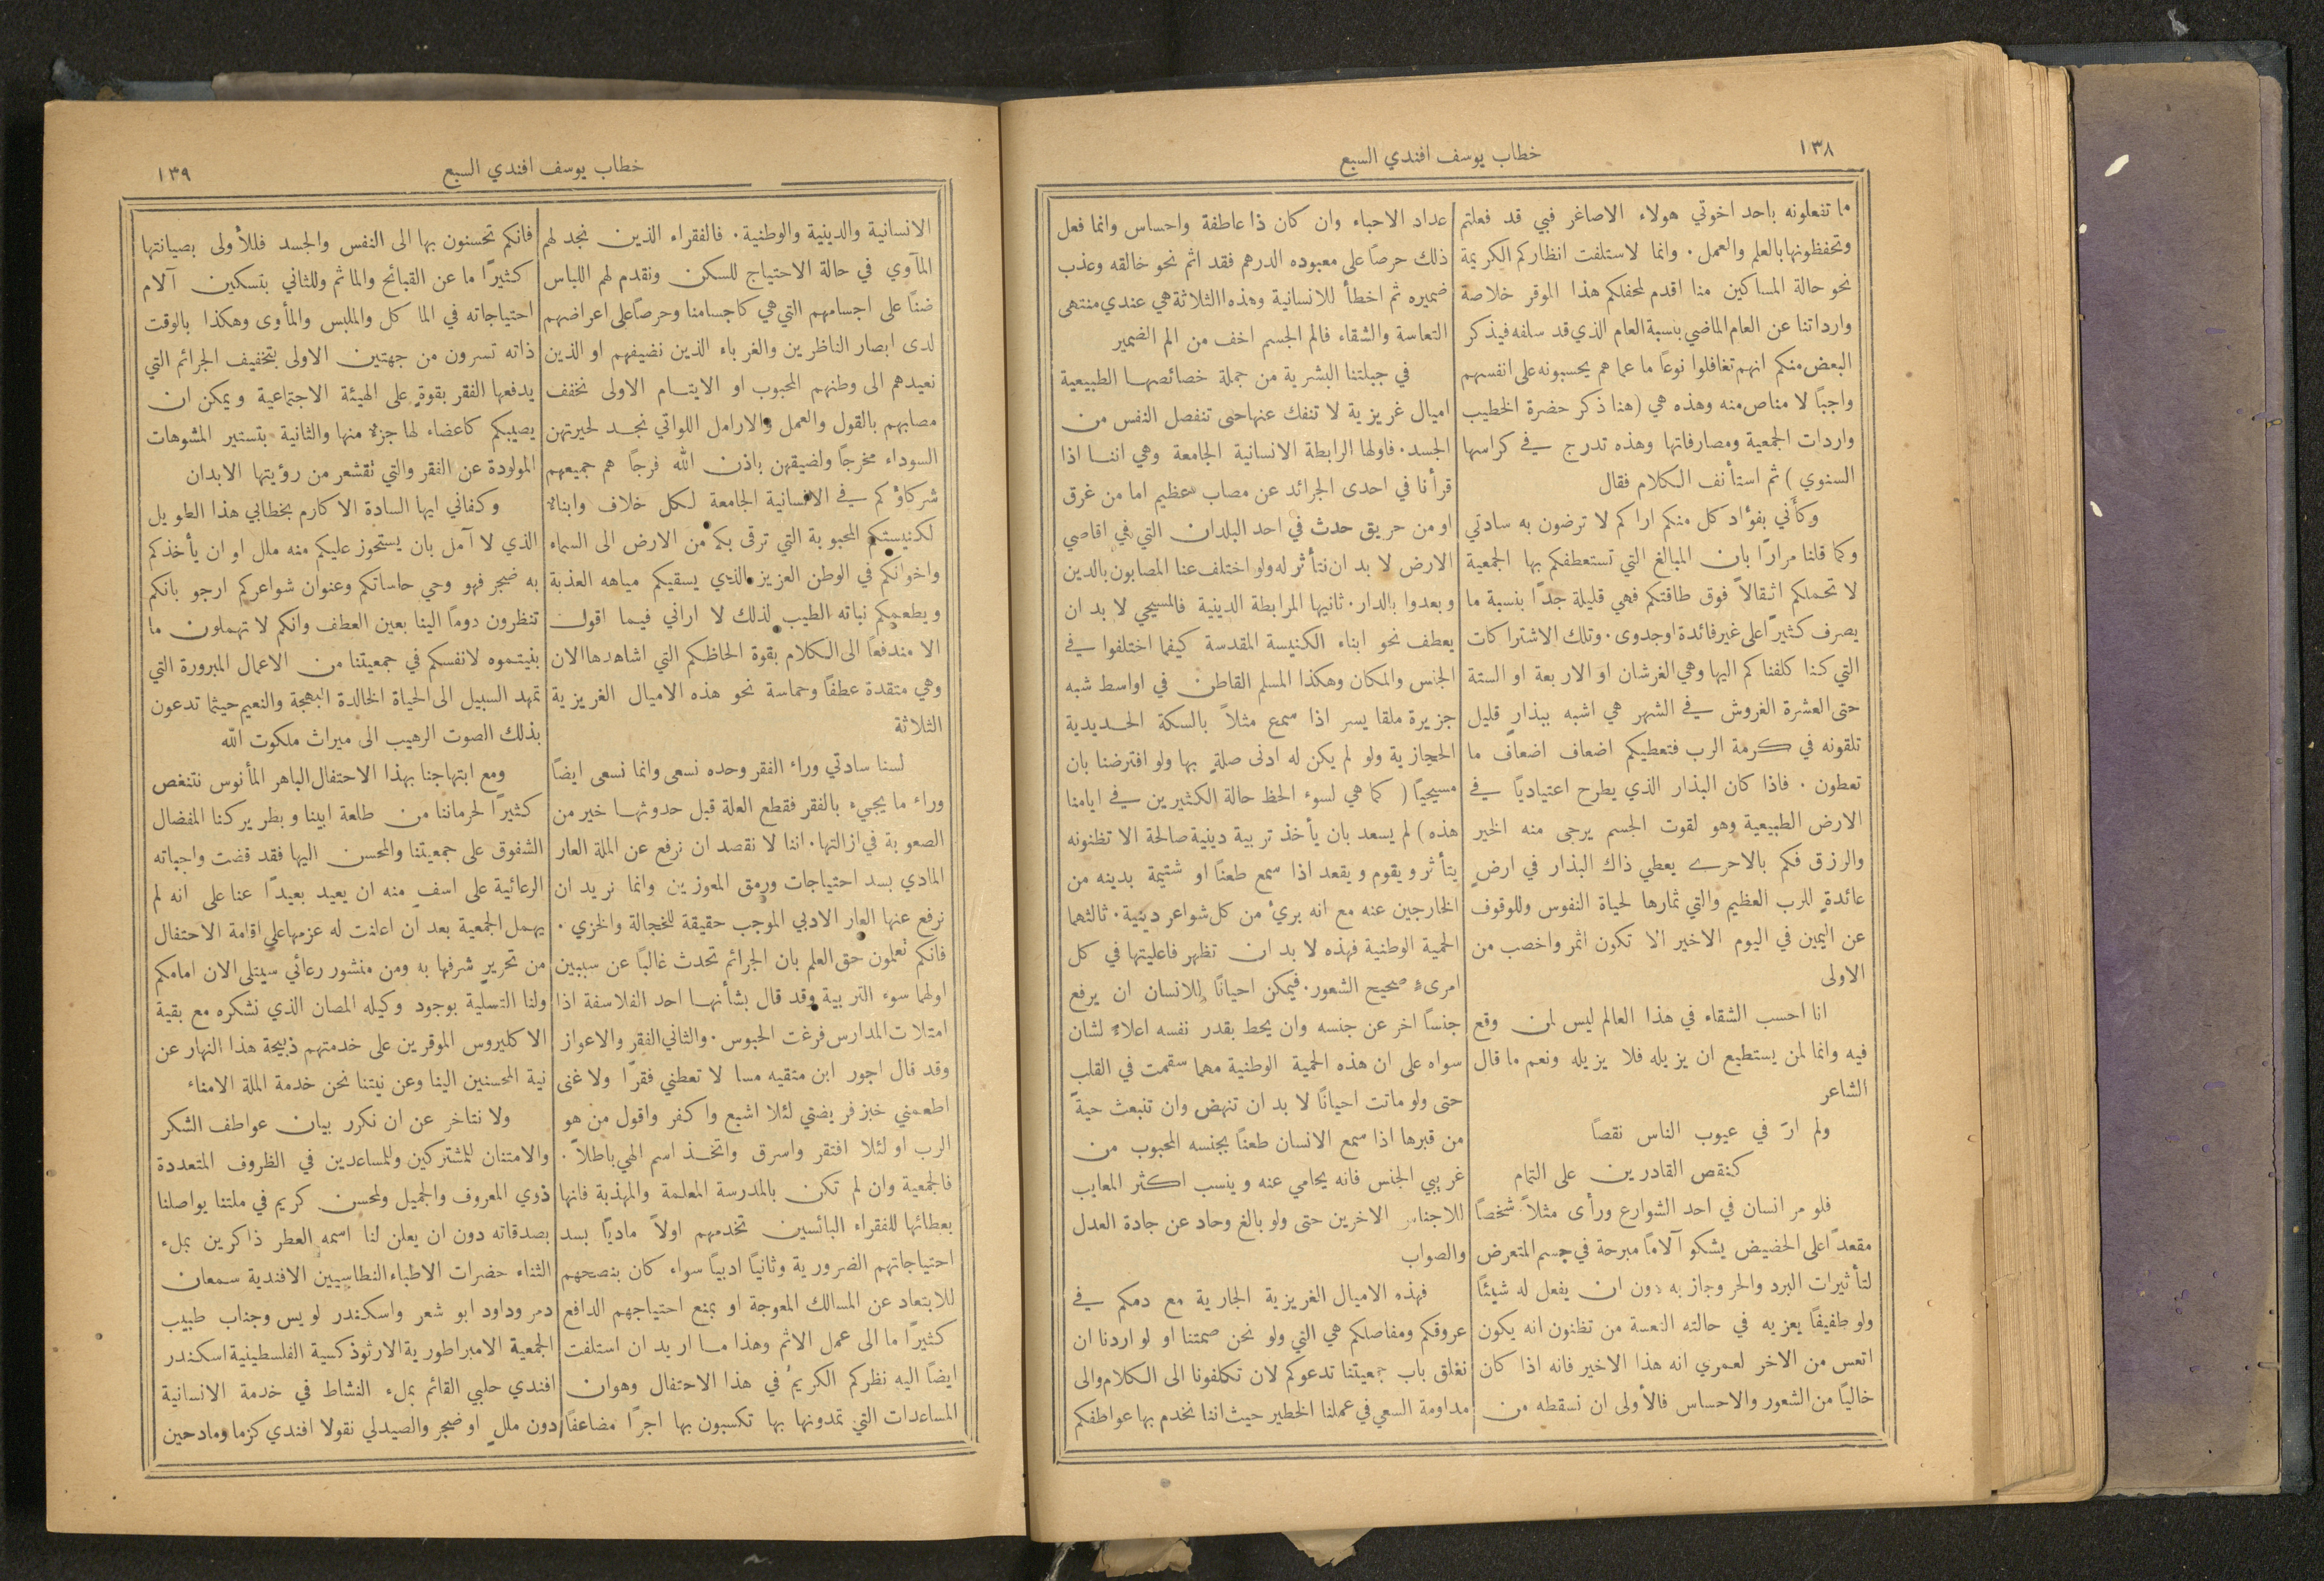 ١٣٨
خطاب يوسف افندي السبع
ما تفعلونه باحد اخوتي هولاء الاصاغر فبي قد فعلتم
وتحفظونها بالعلم والعمل. وانما لاستلفت انظاركم الكريمة
نحو حالة المساكين منا اقدم لمحفلكم هذا الموقر خلاصة
وارداتنا عن العام الماضي بنسبة العام الذي قد سلفه فيذكر
البعض منكم انهم تغافلوا نوعًا ما عما هم يحسبونه على انفسهم
واجبًا لا مناص منه وهذه هي (هنا ذكر حضرة الخطيب
واردات الجمعية ومصارفاتها وهذه تدرج في كراسها
السنوي) ثم استأنف الكلام فقال
وكأَني بفوًاد كل منكم اراكم لا ترضون به سادتي
وكما قلنا مرارًا بان المبالغ التي تستعطفكم بها الجمعية
لا تحملكم اثقالاً فوق طاقتكم فهي قليلة جدًا بنسبة ما
يصرف كثيرًا على غير فائدة او جدوى. وتلك الاشتراكات
التي كنا كلفناكم اليها وهي الغرشان او الاربعة او الستة
حتى العشرة الغروش في الشهر هي اشبه ببذارٍ قليل
تلقونه في كرمة الرب فتعطيكم اضعاف اضعاف ما
تعطون. فاذا كان البذار الذي يطرح اعتياديًا في
الارض الطبيعية وهو لقوت الجسم يرجى منه الخير
والرزق فكم بالاحرى يعطي ذاك البذار في ارضٍ
عائدةٍ للرب العظيم والتي ثمارها لحياة النفوس وللوقوف
عن اليمين في اليوم الاخير الا تكون اثمر واخصب من
الاولى
انا احسب الشقاء في هذا العالم ليس لمن وقع
فيه وانما لمن يستطيع ان يزيله فلا يزيله ونعم ما قال
الشاعر
ولم ارَ في عيوب الناس نقصًا
كنقص القادرين على التمام
فلو مر انسان في احد الشوارع ورأى مثلاً شخصًا
مقعدًا على الحضيض يشكو آلامًا مبرحة في جسم المتعرض
لتأثيرات البرد والحر وجاز به دون ان يفعل له شيئًا
ولو طفيفًا يعزيه في حالته التعسة من تظنون انه يكون
اتعس من الاخر لعمري انه هذا الاخير فانه اذا كان
خاليًا من الشعور والاحساس فالأولى ان نسقطه من
عداد الاحباء وان كان ذا عاطفة واحساس وانما فعل
ذلك حرصًا على معبوده الدرهم فقد اثم نحو خالقه وعذب
ضميره ثم اخطأ للانسانية وهذه االثلاثة هي عندي منتهى
التعاسة والشقاء فالم الجسم اخف من الم الضمير
في جبلتنا البشرية من جملة خصائصها الطبيعية
اميال غريزية لا تنفك عنها حتى تنفصل النفس من
الجسد. فاولها الرابطة الانسانية الجامعة وهي اننا اذا
قرأنا في احدى الجرائد عن مصاب عظيم اما من غرق
او من حريق حدث في احد البلدان التي في اقاصي
الارض لا بد ان نتأثر له ولو اختلف عنا المصابون بالدين
وبعدوا بالدار. ثانيها الرابطة الدينية فالمسيحي لا بد ان
يعطف نحو ابناء الكنيسة المقدسة كيفما اختلفوا في
الجنس والمكان وهكذا المسلم القاطن في اواسط شبه
جزيرة ملقا يسر اذا سمع مثلاً بالسكة الحديدية
الحجازية ولو لم يكن له ادنى صلةٍ بها ولو افترضنا بان
مسيحيًا (كما هي لسوء الحظ حالة الكثيرين في ايامنا
هذه) لم يسعد بان يأخذ تربية دينية صالحة الا تظنونه
يتأثر ويقوم ويقعد اذا سمع طعنًا او شتيمة بدينه من
الخارجين عنه مع انه بريء من كل شواعر دينية. ثالثهما
الحمية الوطنية فهذه لا بد ان تظهر فاعليتها في كل
امرىءٍ صحيح الشعور. فيمكن احيانًا للانسان ان يرفع
جنسًا اخر عن جنسه وان يحط بقدر نفسه اعلاءً لشان
سواه على ان هذه الحمية الوطنية مهما سقمت في القلب
حتى ولو ماتت احيانًا لا بد ان تنهض وان تنبعث حيةً
من قبرها اذا سمع الانسان طعنًا بجنسه المحبوب من
غريبي الجنس فانه يحامي عنه وينسب اكثر المعايب
للاجناس الاخرين حتى ولو بالغ وحاد عن جادة العدل
والصواب
فهذه الاميال الغريزية الجارية مع دمكم في
عروقكم ومفاصلكم هي التي ولو نحن صمتنا او لو اردنا ان
نغلق باب جمعيتنا تدعوكم لان تكلفونا الى الكلام والى
مداومة السعي في عملنا الخطير حيث اننا نخدم بها عواطفكم
خطاب يوسف افندي السبع
١٣٩
الانسانية والدينية والوطنية. فالفقراء الذين نجد لهم
المآوي في حالة الاحتياج للسكن ونقدم لهم اللباس
ضنًا على اجسامهم التي هي كاجسامنا وحرصًا على اعراضهم
لدى ابصار الناظرين والغرباء الذين نضيفهم او الذين
نعيدهم الى وطنهم المحبوب او الايتام الاولى نخفف
مصابهم بالقول والعمل والارامل اللواتي نجد لحيرتهن
السوداء مخرجًا ولضيقهن باذن الله فرجًا هم جميعهم
شركاؤكم في الانسانية الجامعة لكل خلاف وابناء
لكنيستكم المحبوبة التي ترقى بكم من الارض الى السماء
واخوانكم في الوطن العزيز الذي يسقيكم مياهه العذبة
ويطعمكم نباته الطيب لذلك لا اراني فيما اقول
الا مندفعًا الى الكلام بقوة الحاظكم التي اشاهدها الان
وهي متقدة عطفًا وحماسة نحو هذه الاميال الغريزية
الثلاثة
لسنا سادتي وراء الفقر وحده نسعى وانما نسعى ايضًا
وراء ما يجيء بالفقر فقطع العلة قبل حدوثها خير من
الصعوبة في ازالتها. اننا لا نقصد ان نرفع عن الملة العار
المادي بسد احتياجات ورمق المعوزين وانما نريد ان
نرفع عنها العار الادبي الموجب حقيقة للخجالة والخزي.
فانكم تعلمون حق العلم بان الجرائم تحدث غالبًا عن سببين
اولهما سوء التربية وقد قال بشأنها احد الفلاسفة اذا
امتلات المدارس فرغت الحبوس. والثاني الفقر والاعواز
وقد قال اجور ابن متقيه مسا لا تعطني فقرًا ولا غنى
اطعمني خبز فريضتي لئلا اشبع واكفر واقول من هو
الرب او لئلا افتقر واسرق واتخذ اسم الهي باطلاً.
فالجمعية وان لم تكن بالمدرسة المعلمة والمهذبة فانها
بعطائها للفقراء البائسين تخدمهم اولاً ماديًا بسد
احتياجاتهم الضرورية وثانيًا ادبيًا سواء كان بنصحهم
للابتعاد عن المسالك المعوجة او بمنع احتياجهم الدافع
كثيرًا ما الى عمل الاثم وهذا ما اريد ان استلفت
ايضًا اليه نظركم الكريم في هذا الاحتفال وهوان
المساعدات التي تمدونها بها تكسبون بها اجرًا مضاعفًا
فانكم تحسنون بها الى النفس والجسد فللأولى بصيانتها
كثيرًا ما عن القبائح والماثم وللثاني بتسكين آلام
احتياجاته في الماكل والملبس والمأوى وهكذا بالوقت
ذاته تسرون من جهتين الاولى بتخفيف الجرائم التي
يدفعها الفقر بقوةٍ على الهيئة الاجتماعية ويمكن ان
يصيبكم كاعضاء لها جزء منها والثانية بتستير المشوهات
المولودة عن الفقر والتي تقشعر من رؤيتها الابدان
وكفاني ايها السادة الاكارم بخطابي هذا الطويل
الذي لا آمل بان يستحوز عليكم منه ملل او ان يأخذكم
به ضجر فهو وحي حاساتكم وعنوان شواعركم ارجو بانكم
تنظرون دومًا الينا بعين العطف وانكم لا تهملون ما
بنيتموه لانفسكم في جمعيتنا من الاعمال المبرورة التي
تمهد السبيل الى الحياة الخالدة البهجة والنعيم حيثما تدعون
بذلك الصوت الرهيب الى ميراث ملكوت الله
ومع ابتهاجنا بهذا الاحتفال الباهر المأنوس نتنغص
كثيرًا لحرماننا من طلعة ابينا وبطريركنا المفضال
الشفوق على جمعيتنا والمحسن اليها فقد قضت واجباته
الرعائية على اسفٍ منه ان يعيد بعيدًا عنا على انه لم
يهمل الجمعية بعد ان اعلنت له عزمها على اقامة الاحتفال
من تحريرٍ شرفها به ومن منشور رعائي سيتلى الان امامكم
ولنا التسلية بوجود وكيله المصان الذي نشكره مع بقية
الاكليروس الموقرين على خدمتهم ذبيحة هذا النهار عن
نية المحسنين الينا وعن نيتنا نحن خدمة الملة الامناء
ولا نتاخر عن ان نكرر بيان عواطف الشكر
والامتنان للمشتركين وللمساعدين في الظروف المتعددة
ذوي المعروف والجميل ولمحسن كريم في ملتنا يواصلنا
بصدقاته دون ان يعلن لنا اسمه العطر ذاكرين بملء
الثناء حضرات الاطباء النطاسيين الافندية سمعان
دمر وداود ابو شعر واسكندر لويس وجناب طبيب
الجمعية الامبراطورية الارثوذكسية الفلسطينية اسكندر
افندي حلبي القائم بملء النشاط في خدمة الانسانية
دون مللٍ او ضجر والصيدلي نقولا افندي كزما ومادحين